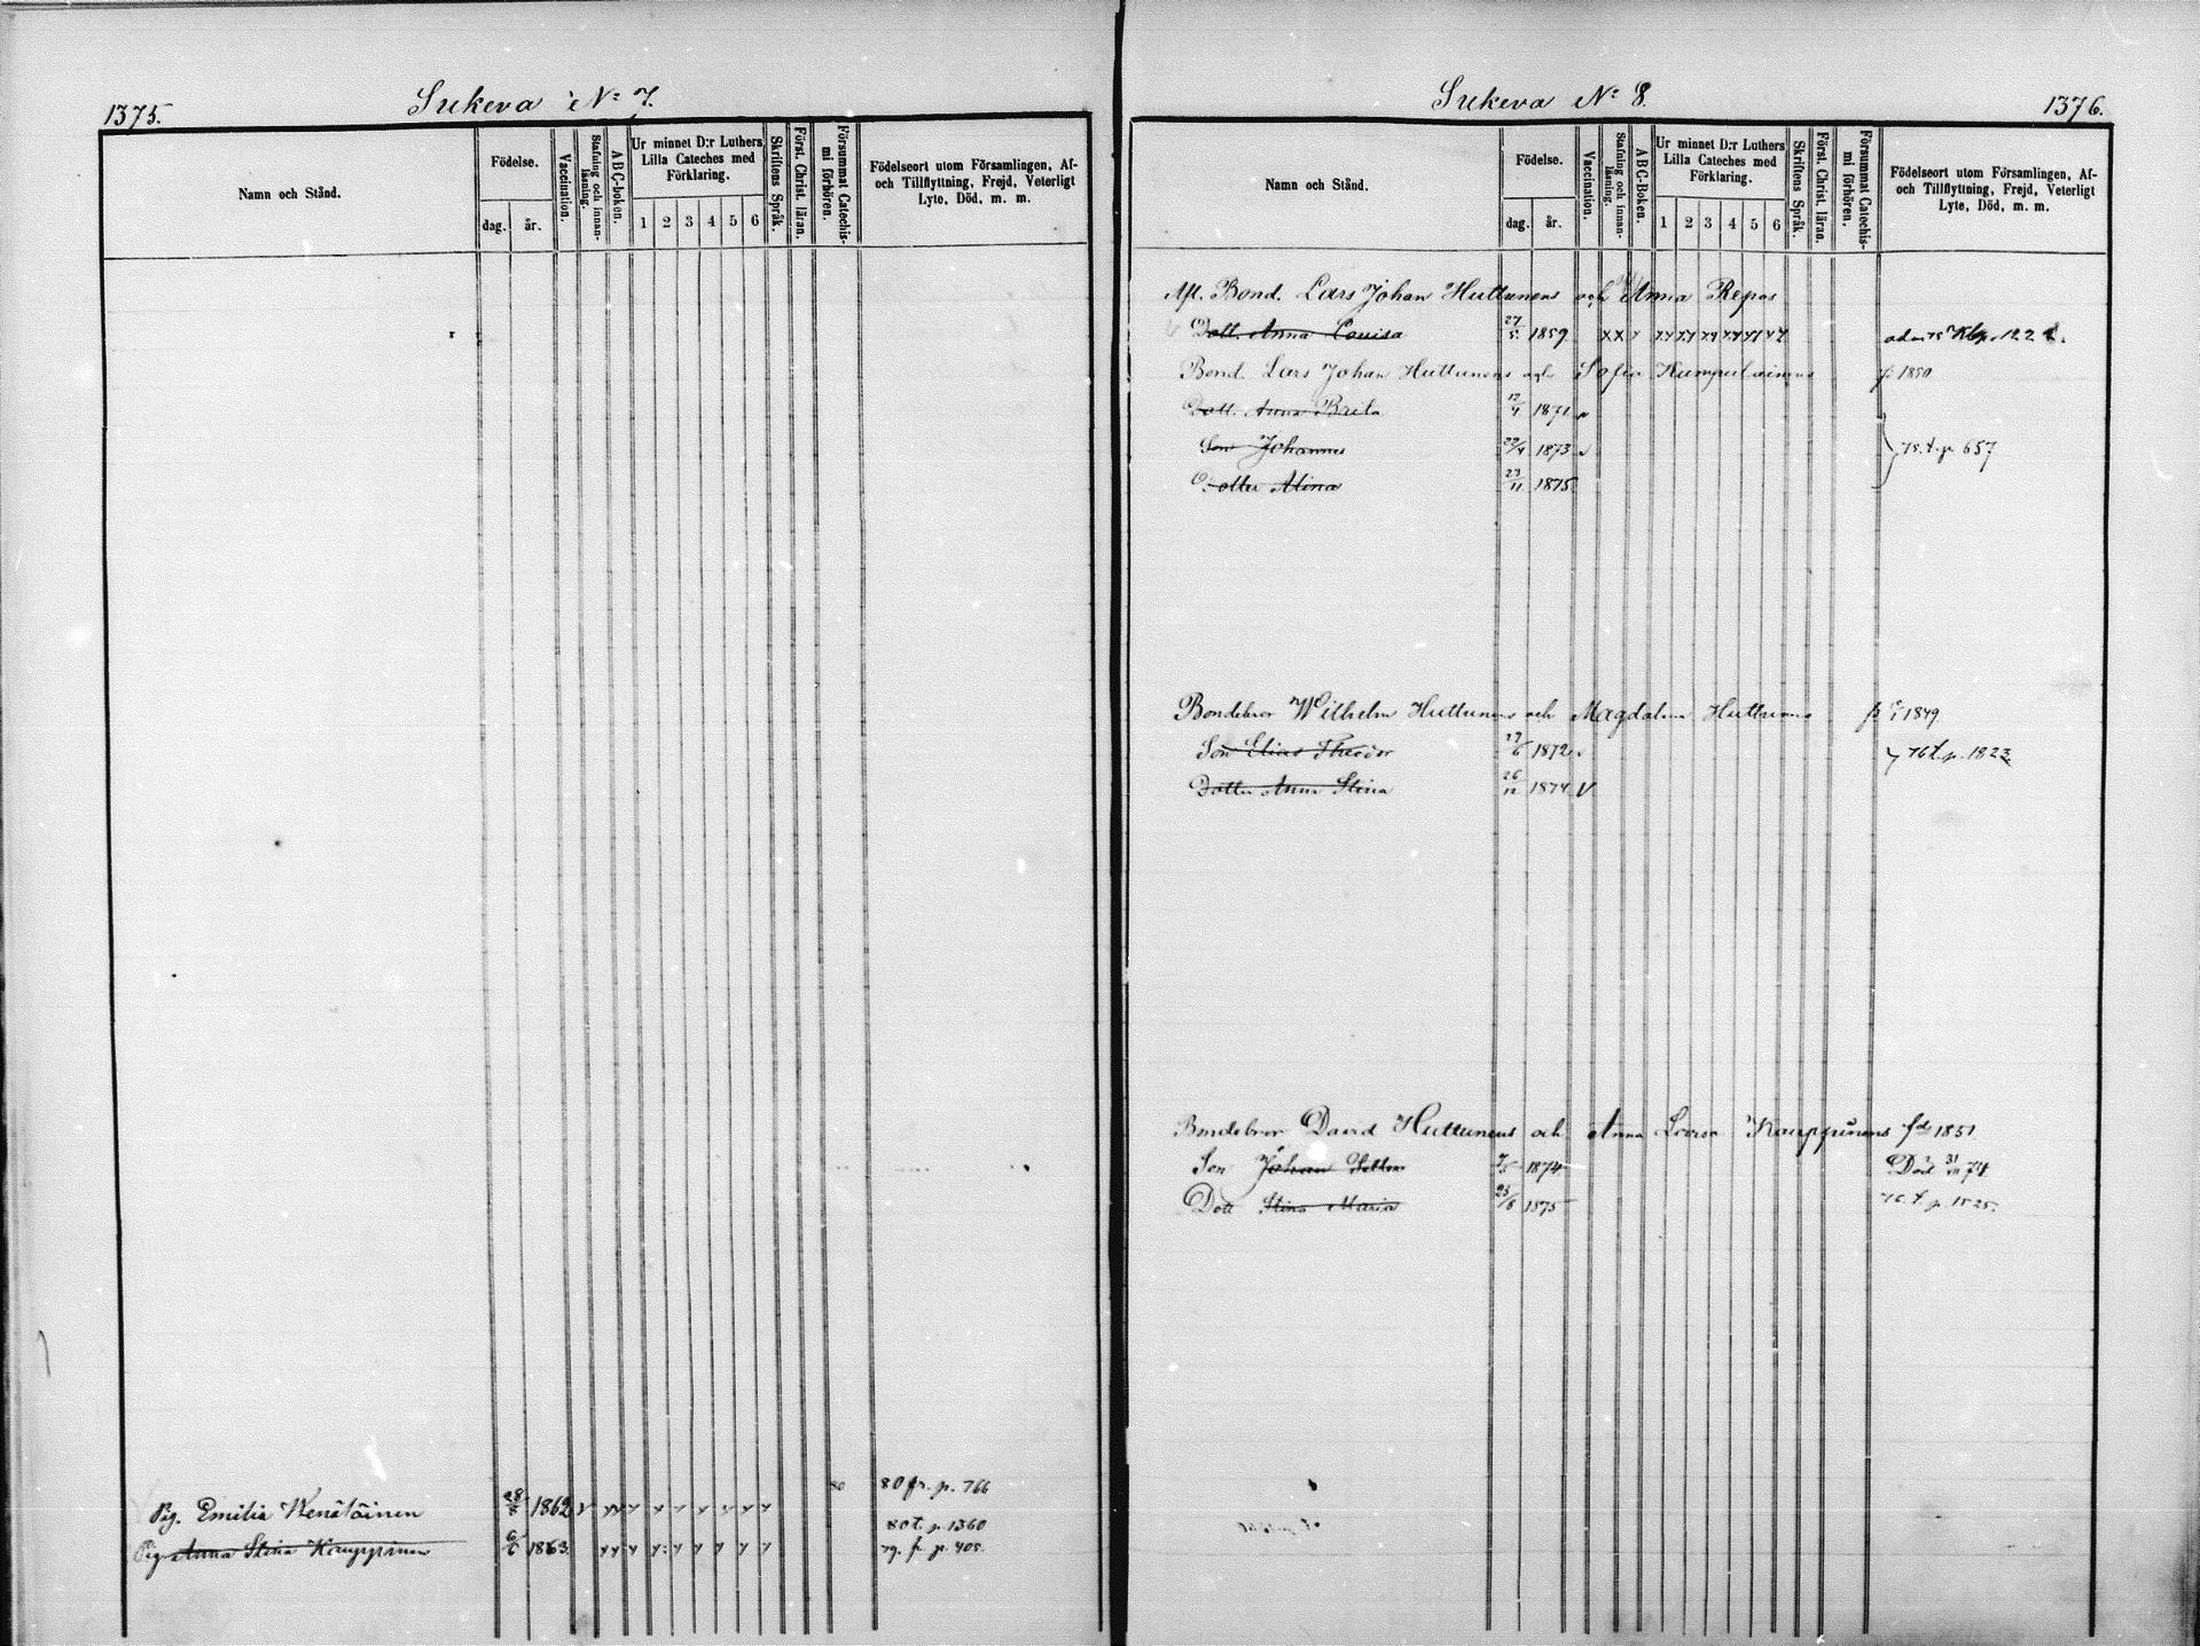 1375.
Sukeva No 7.
Namn och Stånd.
Födelse.
dag.
år.
Vaccination.
Stafning och innanläsning.
ABC-boken.
Ur minnet D:r Luthers Lilla Cateches med Förklaring.
1 2 3 4 5 6
Skriftens Språk.
Först. Christ. läran.
Försummat Catechismi förhören.
Födelseort utom Församlingen, Af-
och Tillflyttning, Frejd, Veterligt
Lyte, Död, m. m.
80 80 fr. p. 766
Pig. Emilia Wenäläinen 28/8 1862
80 t. p. 1360
Pig Anna Stina Kauppinen 6/6 1863 79. fr p. 405.
Sukeva No 8.
1376.
Namn och Stånd.
Födelse.
dag.
år.
Vaccination.
Stafning och innanläsning.
ABC-Boken.
Ur minnet D:r Luthers Lilla Cateches med Förklaring.
1 2 3 4 5 6
Skriftens Språk.
Först. Christ. läran.
Försummat Catechismi förhören.
Födelseort utom Församlingen, Af-
och Tillflyttning, Frejd, Veterligt
Lyte, Död, m. m.
Afl. Bond. Lars Johan Huttunens och Anna Repos
Dott. Anna Lovisa 27/5 1859 X X
Bond. Lars Johan Huttunens och Sofia Kumpulainens f 1850
Dott. Anna Brita 17/4 1871
Son Johannes 22/4 1873 75. t. p. 657
Dotter Alina 23/11 1875
Bondebror Wilhelm Huttunens och Magdalena Huttunens 1849
Son Elias Theodor 1872 76 t. p. 1823
Dotter Anna Stina 26/12 1874 V
Bondebror David Huttunens och Anna Lovisa Kauppinens fd 1851
Son Johan 1874 Död 31/ 74
Dott Stina Maria 25/8 1875 76. t p. 1525.